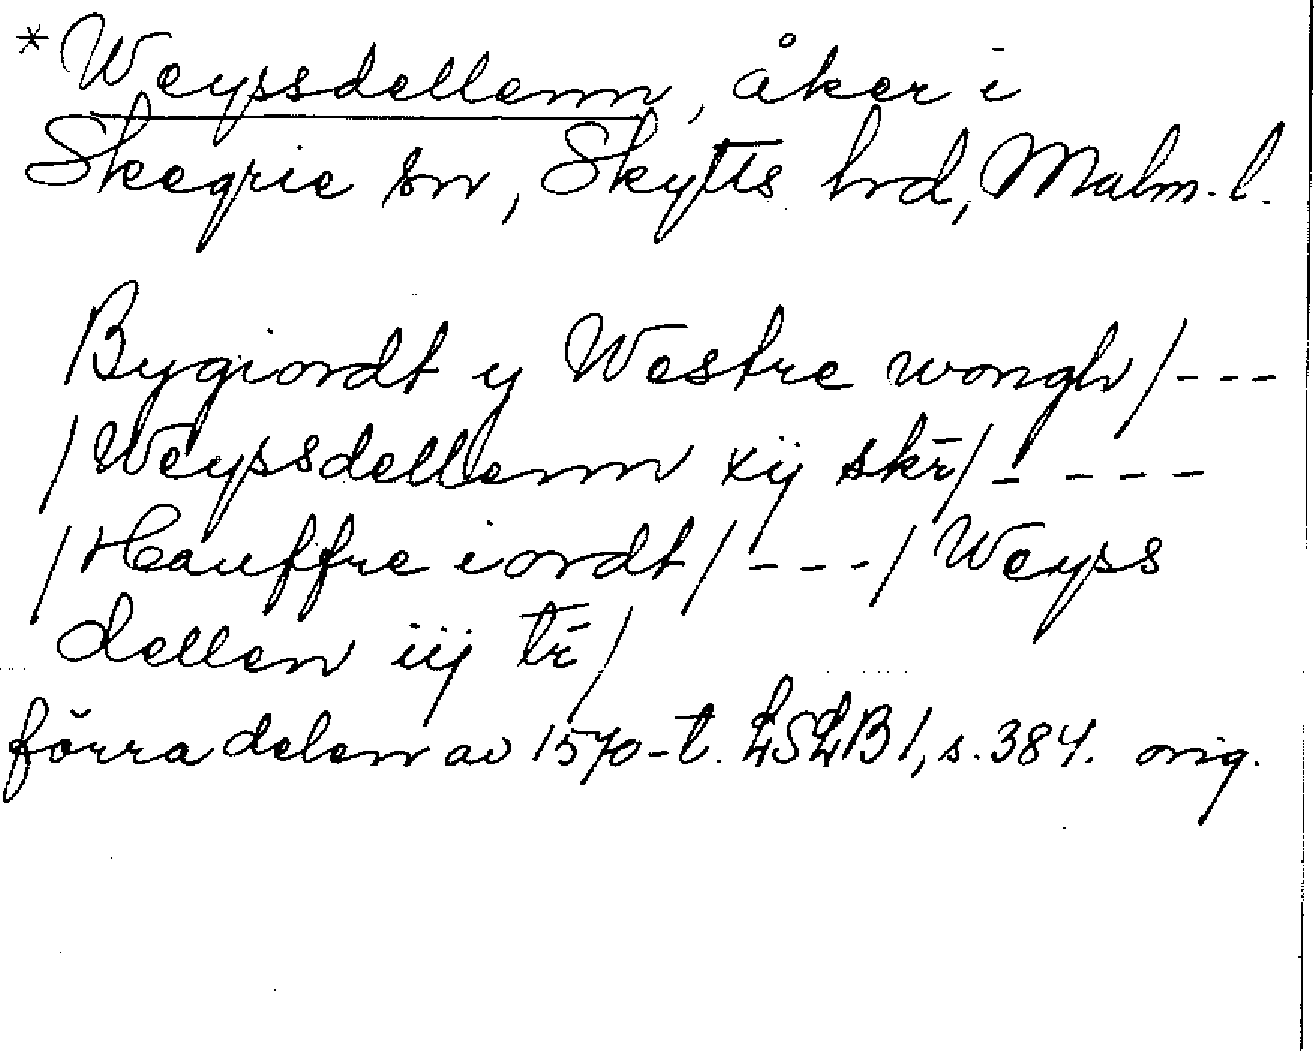 *Weyssdellenn, åker i
Skegrie sn, Skytts hrd, Malm. l.
Bygiordt y Westre wongh/---
/Weyssdellenn xij skr̄/----
/Hauffre iordt/---/Weyss
dellen iij tr̄/
förra delen av 1570-t. LSLB 1, s. 384. orig.